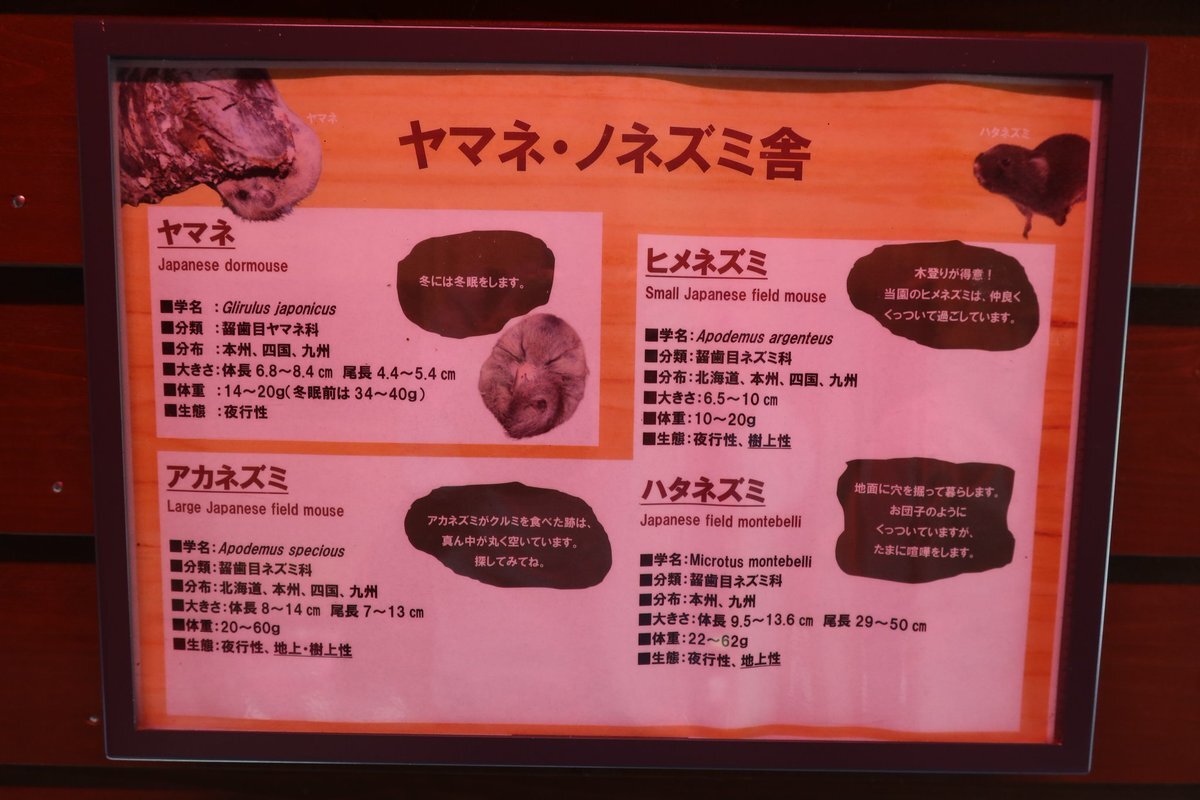 ヤマネ
ヤマネ・ノネズミ舎
ハタネズミ
ヤマネ
Japanese dormouse
冬には冬眠をします。
■学名 :Glirulus japonicus
■分類 :齧歯目ヤマネ科
■分布 :本州、四国、九州
■大きさ:体長 6.8～8.4 ㎝ 尾長 4.4～5.4 ㎝
■体重 :14～20g(冬眠前は 34～40g)
■生態 :夜行性
ヒメネズミ
Small Japanese field mouse
木登りが得意!
当園のヒメネズミは、仲良く
くっついて過ごしています。
■学名:Apodemus argenteus
■分類:齧歯目ネズミ科
■分布:北海道、本州、四国、九州
■大きさ:6.5～10 ㎝
■体重:10～20g
■生態:夜行性、樹上性
アカネズミ
Large Japanese field mouse
アカネズミがクルミを食べた跡は、
真ん中が丸く空いています。
探してみてね。
■学名:Apodemus specious
■分類:齧歯目ネズミ科
■分布:北海道、本州、四国、九州
■大きさ:体長 8～14 ㎝ 尾長 7～13 ㎝
■体重:20～60g
■生態:夜行性、地上・樹上性
ハタネズミ
Japanese field montebelli
地面に穴を掘って暮らします。
お団子のように
くっついていますが、
たまに喧嘩をします。
■学名:Microtus montebelli
■分類:齧歯目ネズミ科
■分布:本州、九州
■大きさ:体長 9.5～13.6 ㎝ 尾長 29～50 ㎝
■体重:22～62g
■生態:夜行性、地上性